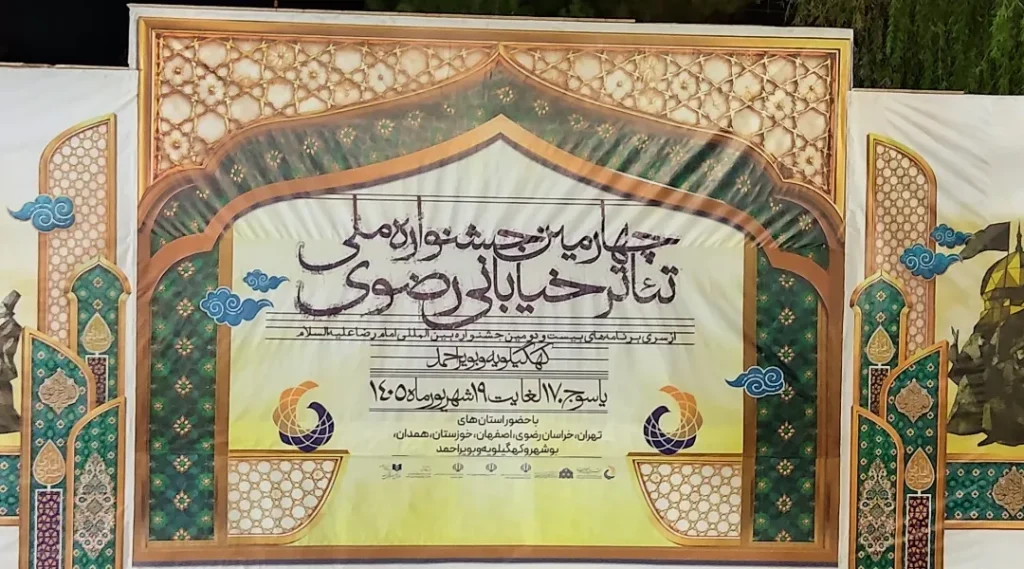 چهارمین جشنواره ملی
تئاتر خیابانی رضوی
از سری برنامه‌های بیست و دومین جشنواره بین المللی امام رضا علیه السلام
کهگیلویه و بویراحمد
یاسوج، ۱۷ لغایت ۱۹ شهریور ماه ۱۴۰۵
با حضور استان های
تهران، خراسان رضوی، اصفهان، خوزستان، همدان،
بوشهر و کهگیلویه و بویراحمد